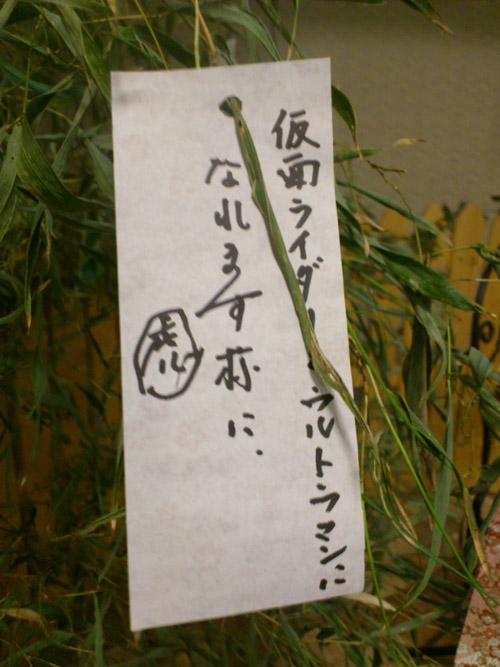 仮面ライダー ウルトラマンに
なれます様に.